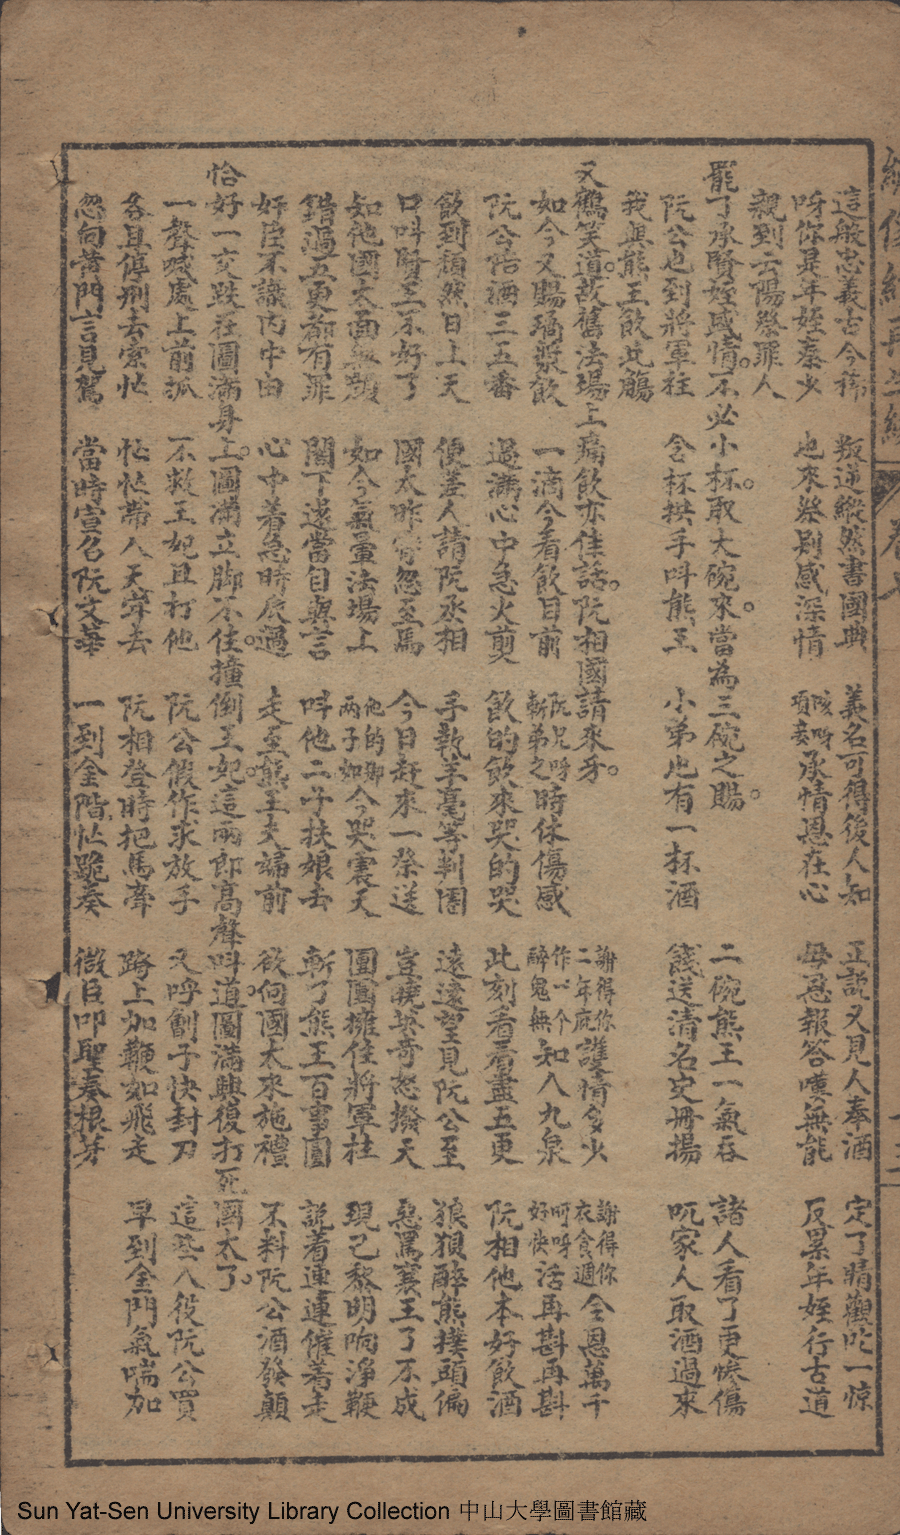 這般忠義古今稀　叛逆縱然書國典　義名可得後人知　正說又見人奉酒　定了睛觀吃一惊
呀你是年姪秦少　也來祭剐感深情　咳呀項妾承情恩在心　母恩報答嘆無能　反累年姪行古道
親到云陽祭罪人
罷了承賢姪感情。不必小杯。取大碗來。當為三碗之賜。二碗熊王一氣吞　諸人看了更慘傷
阮公也到將軍柱　念杯拱手叫熊王　小弟也有一杯酒　餞送清名史冊揚　吩家人取酒過來
我與熊王飲此觴
又鶴笑道。故舊法場上痛飲亦佳話。阮相國請來牙。謝得你二年庇護情多少　謝得你衣食週全恩萬千
如今又賜璚漿飲　一滴今看飲目前　阮兄呀斬弟之時休傷感　作一个醉鬼無知入九泉　呵呀好快活再斟再斟
阮公陪酒三五番　過滿心中急火煎　飲的飲來哭的哭　此刻看看盡五更　阮相他本好飲酒
飲到頹然日上天　便差人請阮丞相　手執羊毫等判圈　遠遠望見阮公至　狼狽醉熊撲頭偏
口叫賢王不好了　國太昨宵忽至馬　今日赶來一祭送　豈曉英奇怒撥天　惡罵襄王了不成
如他國太面無顏　如今氣暈法場上　他的卿兩子如今哭震天　團團擁住將軍柱　現已黎明响淨鞭
錯過五更都有罪　閣下遂當自與言　叫他二子扶娘去　斬了熊王百事圓　説着連連催着走
奸臣不識內中由　心中着急時辰過　走至熊王夫婦前　欲向國太來施禮　不料阮公酒發顛
恰好一交跌在圖滿身上。圖滿立脚不住。撞倒王妃。這兩郎高聲叫道。圖滿興復打死國太了。
一聲喊處上前抓　不救王妃且打他　阮公假作求放手　又呼劊子快封刀　這些人役阮公買
各且停刑去索忙　忙忙帶人天牢去　阮相登時把馬牽　跨上加鞭如飛走　早到金門氣喘加
忽向黄門言見駕　當時宣召阮文華　一到金階忙跪奏　微臣叩聖奏根芽
Sun Yat-Sen University Library Collection 中山大學圖書館藏